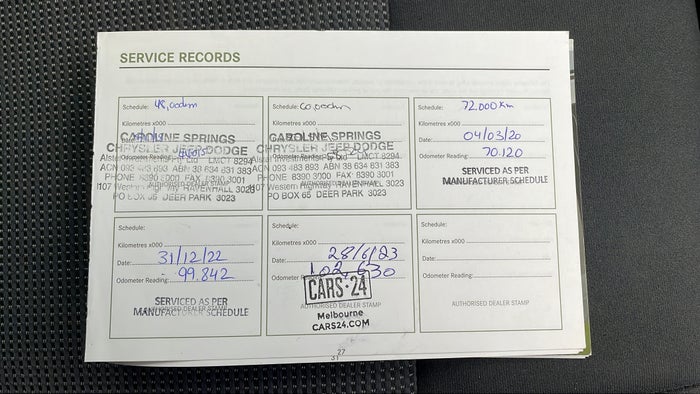 SERVICE RECORDS
Schedule: 48,000km
Kilometres x000
Date:
Odometer Reading:
CAROLINE SPRINGS
CHRYSLER JEEP DODGE
Pty Ltd LMCT 8294
ACN 093 483 893 ABN 38 634 631 383
PHONE 8390 3000 FAX 8390 3001
1107 Western Highway RAVENHALL 3023
PO BOX 65 DEER PARK 3023
Schedule: 60,000km
Kilometres x000
Date:
Odometer Reading:
CAROLINE SPRINGS
CHRYSLER JEEP DODGE
Pty Ltd LMCT 8294
ACN 093 483 893 ABN 38 634 631 383
PHONE 8390 3000 FAX 8390 3001
1107 Western Highway RAVENHALL 3023
PO BOX 65 DEER PARK 3023
Schedule: 72,000 Km
Kilometres x000
Date: 04/03/20
Odometer Reading: 70.120
SERVICED AS PER
MANUFACTURER SCHEDULE
Schedule:
Kilometres x000
Date: 31/12/22
Odometer Reading: 99.842
SERVICED AS PER
AUTHORISED DEALER STAMP
MANUFACTURER SCHEDULE
Schedule:
Kilometres x000
Date: 28/6/23
Odometer Reading: 102,630
CARS·24
AUTHORISED DEALER STAMP
Melbourne
CARS24.COM
Schedule:
Kilometres x000
Date:
Odometer Reading:
AUTHORISED DEALER STAMP
27
31